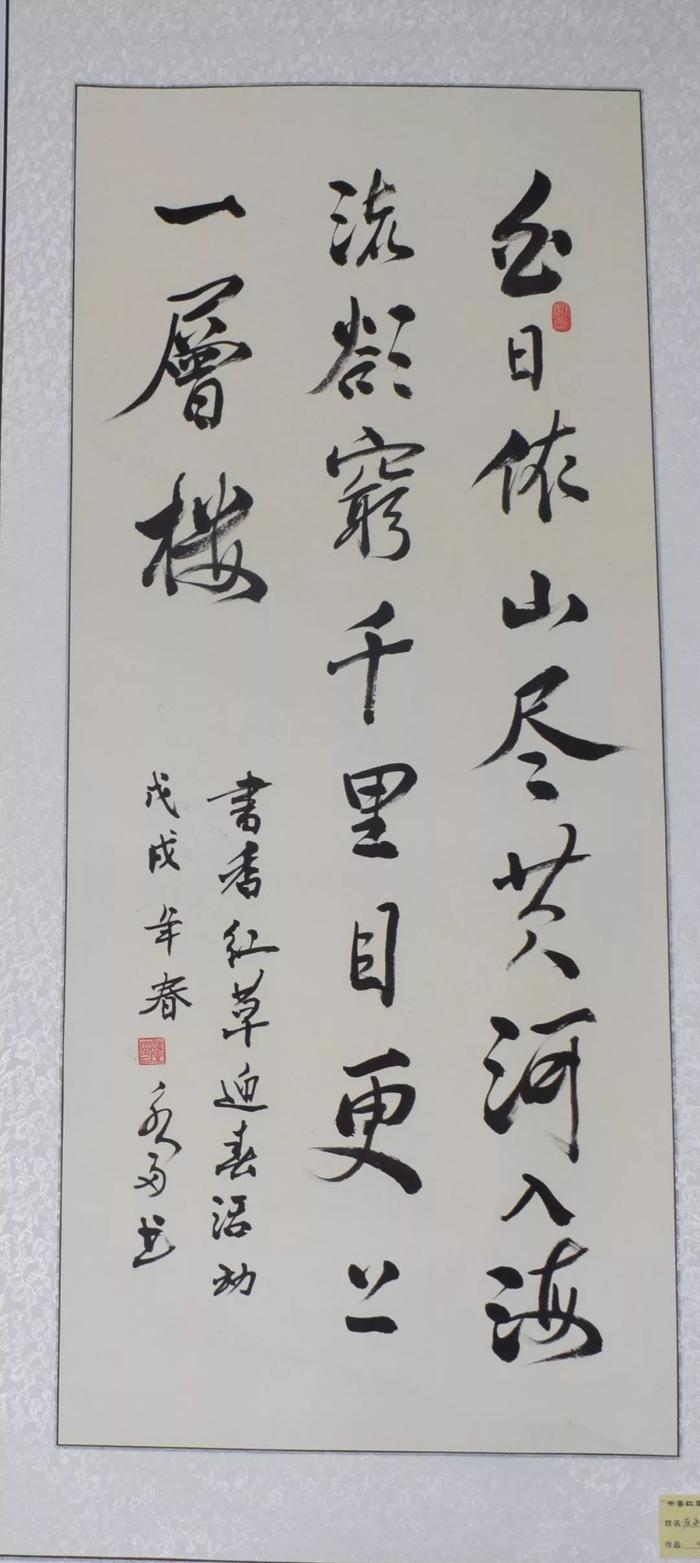 白日依山尽黄河入海
流欲窮千里目更上
一層楼
書香红草迎春活动
戊戌年春
书
姓名:
作品: